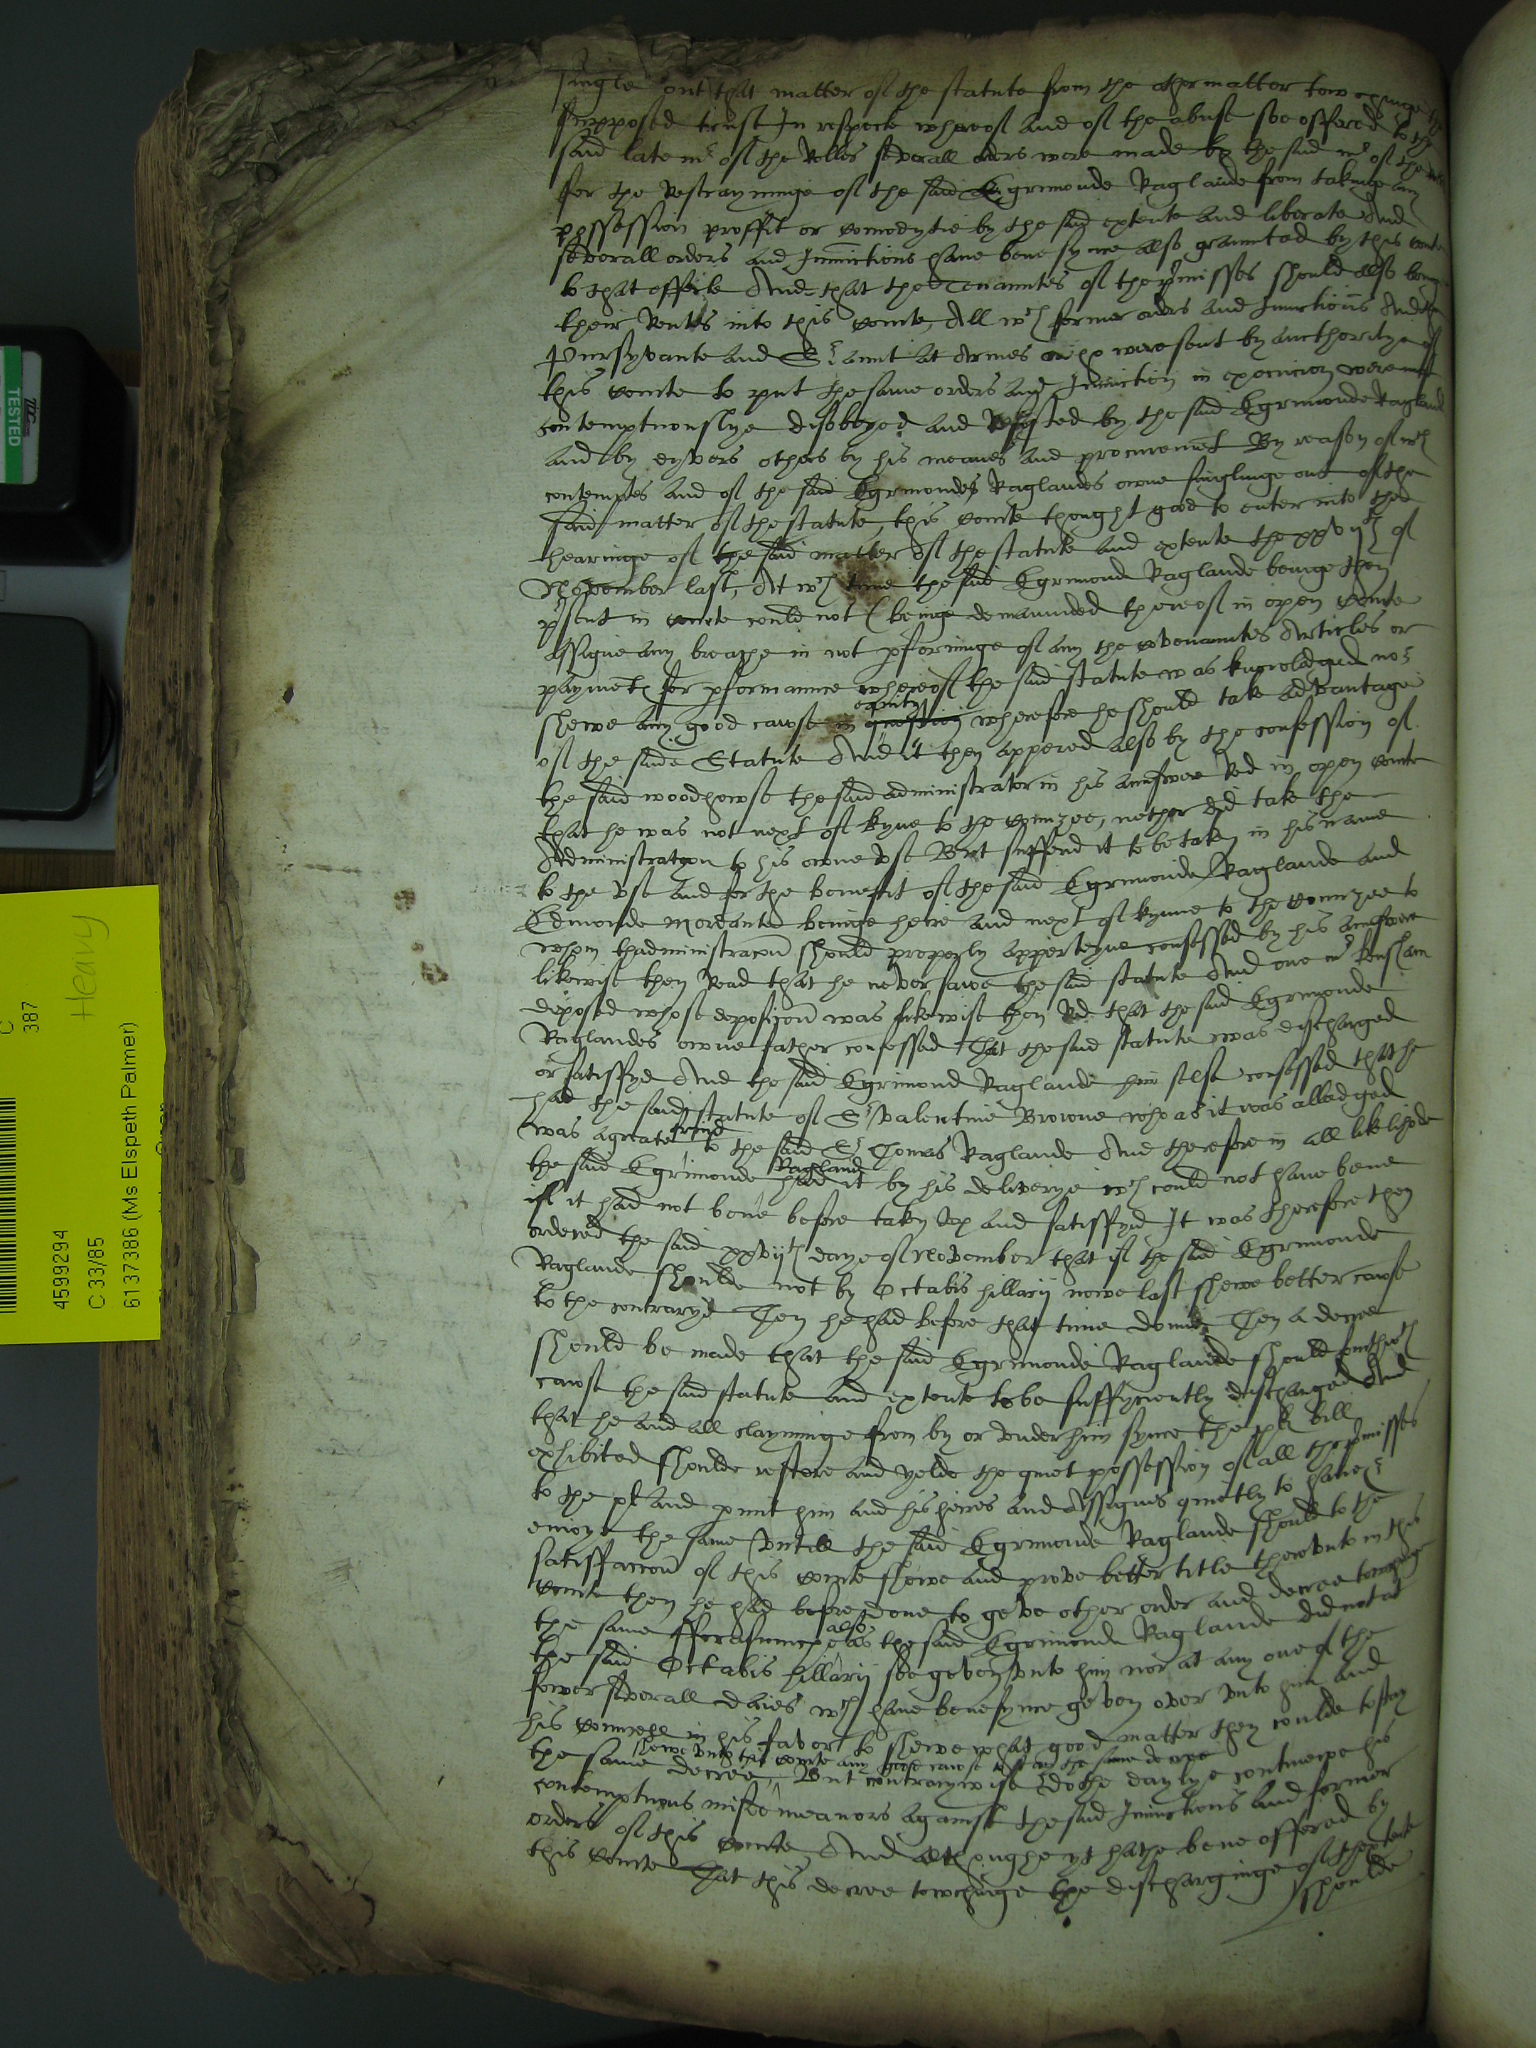 single out that matter of the statute from the other matter towchinge the
supposed trust In respecte whereof and of the abuse soe offered to the
said late mr of the Rolles severall orders were made by the said mr of the Rolles
for the Restrayninge of the said Egrimonde Raglande from takinge any
possession proffit or comodytie by the said extente and liberate And
severall orders and Iniunctions have bene synce also graunted by this courte
to that effecte And that the Tenauntes of the pmisses should also bringe
their Rentes into this courte, All wch former orders and Iniunctions And the
Pursyvante and Sriaunt at Armes which were sent by aucthoritye of
this courte to put the same orders and Iniunction in execucion were most
contemptuouslye disobeyed and Resisted by the said Egrimonde Raglande
and by dyvers others by his meanes and procurement By reason of wch
contemptes and of the said Egrimondes Raglandes owne singlinge out of the
said matter of the statute, this courte thought good to enter into the
hearinge of the said matter of the statute and extente the xxvijth of
November last, At wch time the said Egrimond Raglande beinge then
psent in courte could not (beinge demaunded thereof in open courte
assigne any breache in not pforminge of any the covenauntes Articles or
paymetes for pformaunce whereof the said statute was knowledged nor
shewe any good cawse in question equity wherefore he should take advantage
of the saide Statute And it then appered also by the confession of
the said woodhowse the said administrator in his aunswere Red in open courte
that he was not next of kyne to the conuzee, nether did take the
Administration to his owne use But suffered it to be taken in his name
to the use and for the benefit of the said Egrimonde Raglande and
Edmonde Mordante beinge heire and next of kynne to the conuzee to
whom thadministracon should properly apperteyne confessed by his aunswere
likewise then Read that he never sawe the said statute And one mr
deposed whose deposicon was likewise then Red that the said Egrimonde
Raglandes owne father confessed That the said statute was discharged
or satisfyd And the said Egrimond Raglande him selfe confessed that he
had the said statute of Sr Valentine Browne who as it was alledged
was a greate frend to the said Sr Thomas Raglande And therefore in all liklihode
the said Egrimonde Raglande had it by his deliverye wch could not have bene
if it had not bene before taken up and satisfyd It was therefore then
ordered the said xxvijth daye of November that if the said Egrimonde
Raglande shoulde not by Octabis hillarij nowe last shewe better cawse
to the contrarye Then he had before that time donne, Then a decree
should be made that the said Egrimonde Raglande should furthwth
cawse the said statute and extente to be suffyciently discharged And
that he and all clayminge from by or under him synce the pl bill
exhibited shoulde restore and yelde the quiet possession of all the pmisses
to the pl and pmit him and his heires and Assignes quietly to have &
enioye the same Untill the said Egrimonde Raglande should to the
satisfaccon of this courte shewe and prove better title thereunto in this
courte then he had before done to geve other order and decree towchinge
the same fforasmuche also as the said Egrimonde Raglande did not at
the said Octabis hillarij soe geven unto him nor at any one of the
fower severall daies wch have bene synce geven over unto him and
his councell in his favor to shewe what good matter they coulde to stay
the same decree, shewe unto this courte any good cawse to stay the same decree But contrarywise dothe daylye contynewe his
contemptuous misdemeanors against the said Iniunctions and former
orders of this courte, And althoughe yt hathe bene offered by
this courte That this decree towchinge the discharginge of the extente
shoulde
TESTED
C
387
Heavy
4599294
C 33/85
6137386 (Ms Elspeth Palmer)